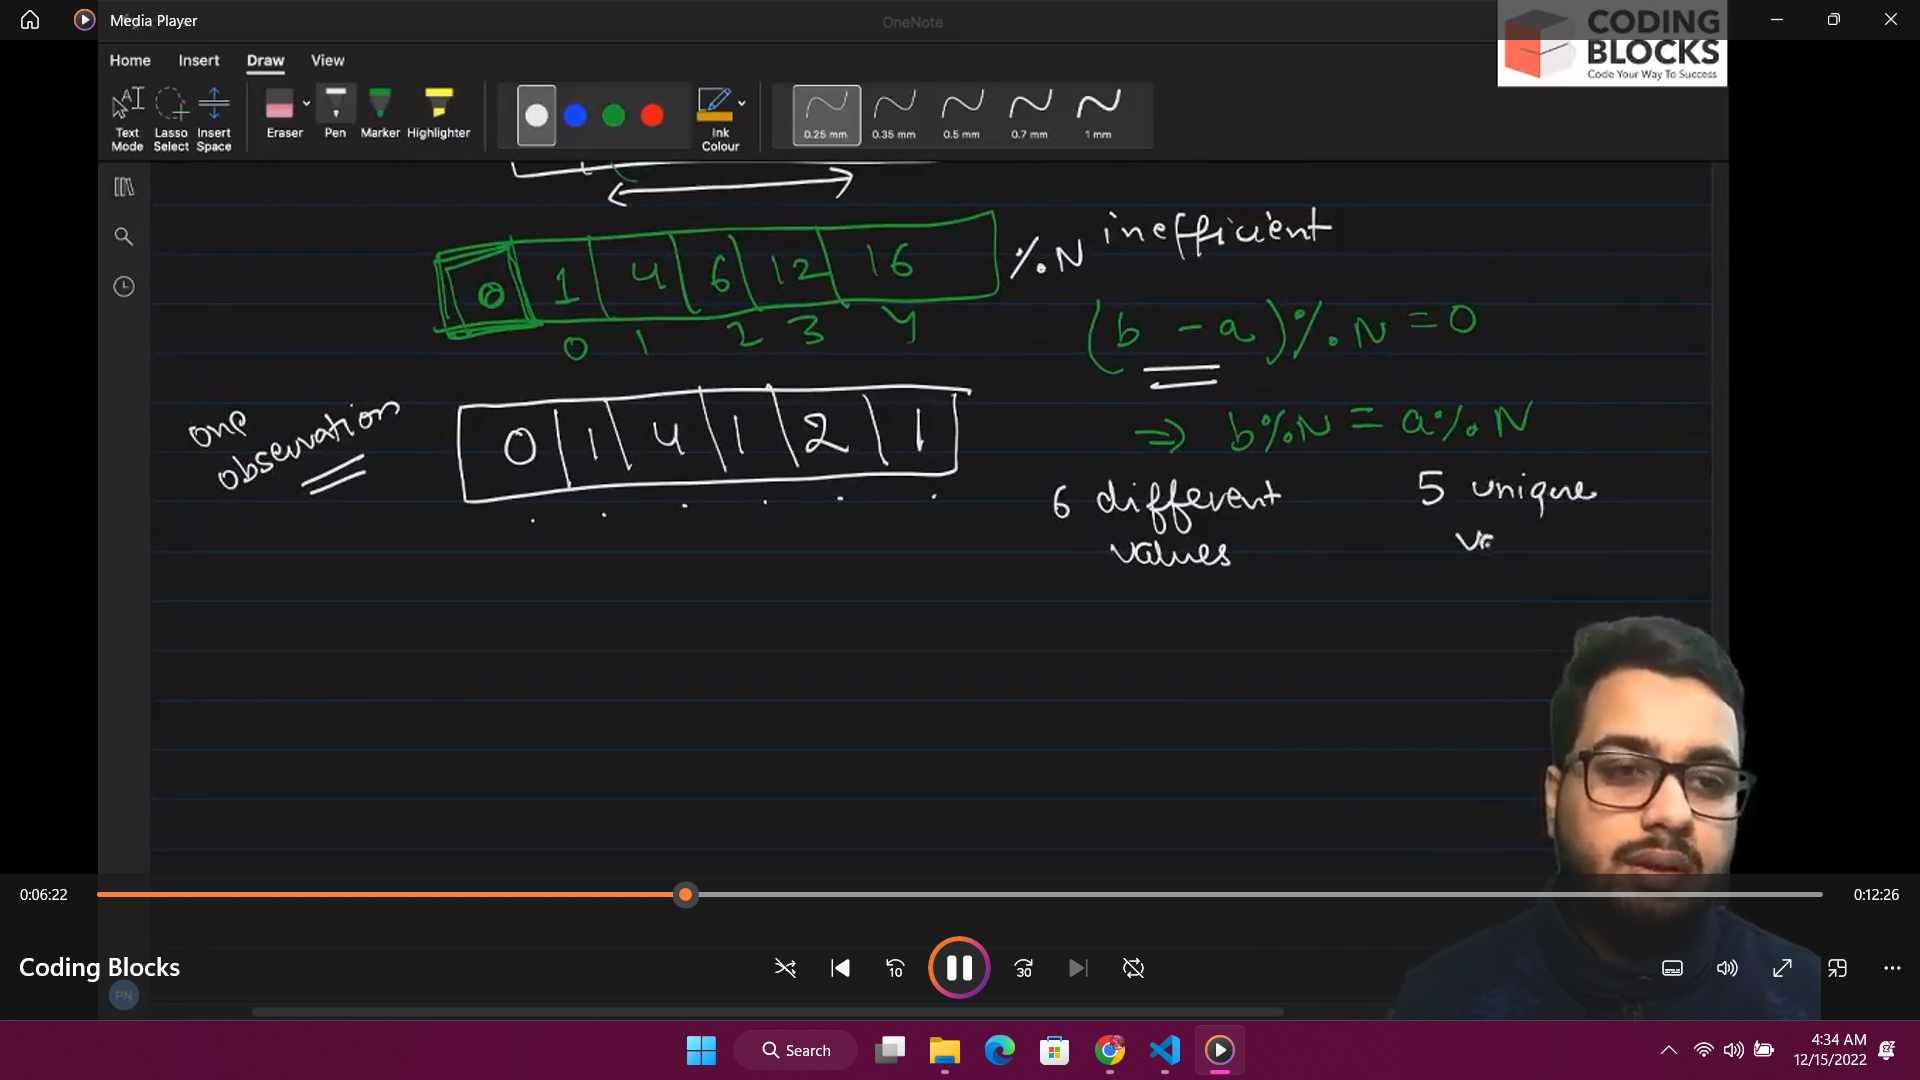 Media Player
OneNote
CODING
BLOCKS
Code Your Way To Success
Home Insert Draw View
Text Mode
Lasso Select
Insert Space
Eraser
Pen
Marker
Highlighter
Ink Colour
0.25 mm
0.35 mm
0.5 mm
0.7 mm
1 mm
0 1 4 6 12 16
%N inefficient
0 1 2 3 4
(b - a)%N = 0
one
observation
0 1 4 1 2 1
=> b%N = a%N
6 different
values
5 unique
0:06:22
0:12:26
Coding Blocks
10
30
PN
Search
4:34 AM
12/15/2022